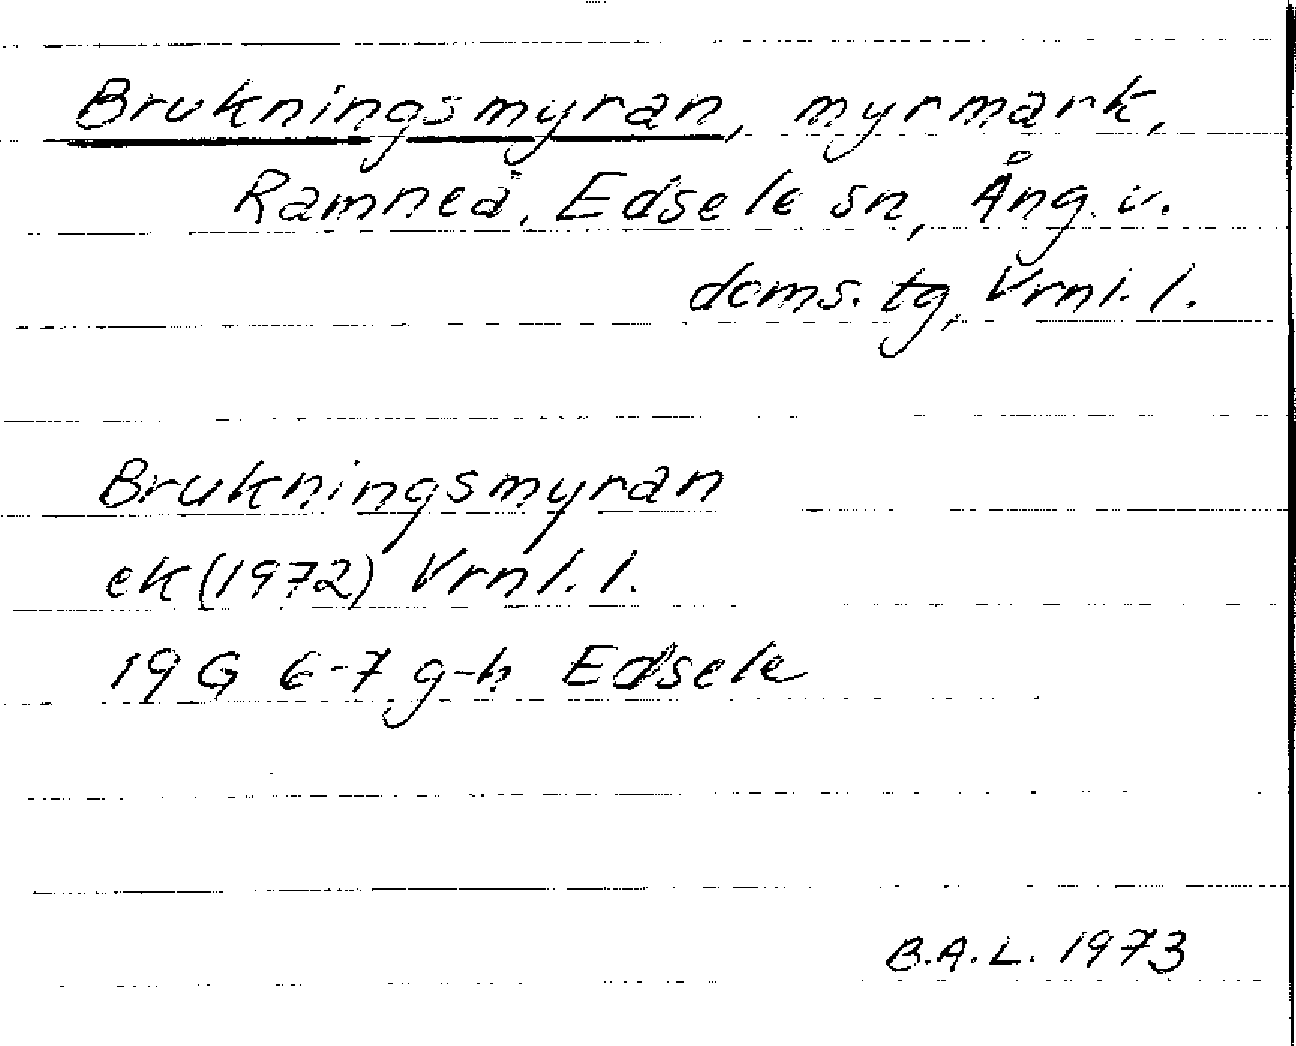 Brukningsmyran, myrmark,
Ramneå, Edsele sn, Ång. v.
doms. tg, Vrnl. l.
Brukningsmyran
ek (1972) Vrnl. l.
19 G 6-7 g-h Edsele
B.A.L. 1973